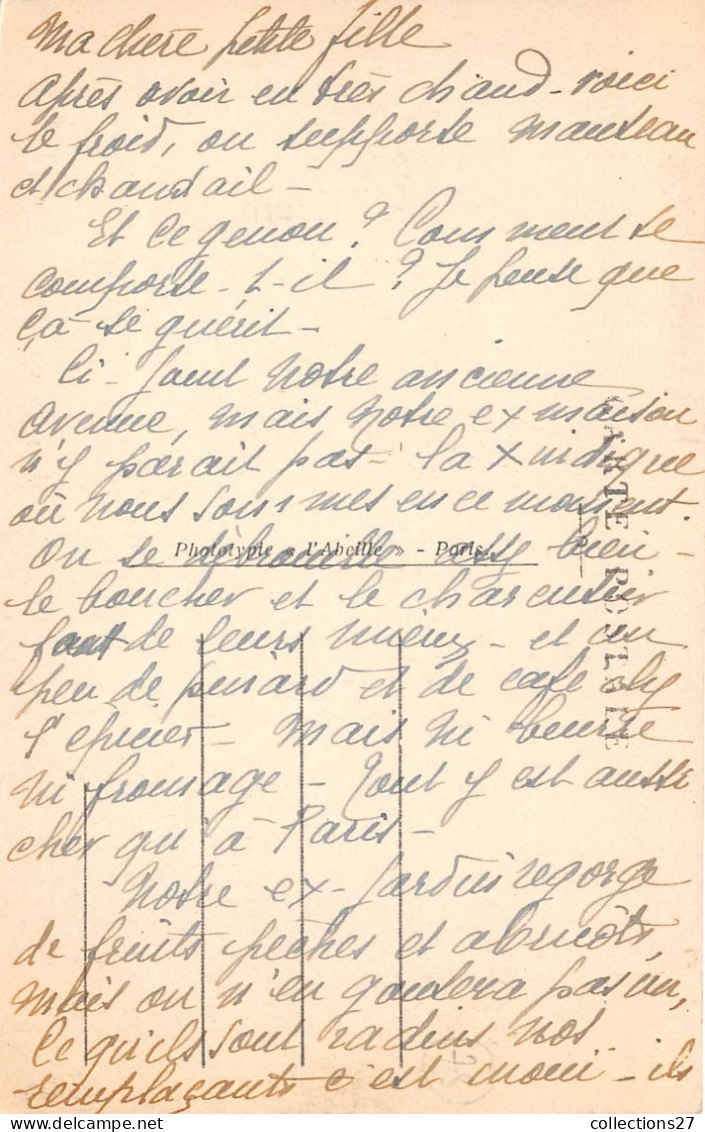 Ma chère petite fille
Après avoir eu très chaud - voici
le froid, on supporte manteau
et chandail -
Et ce genou ? Comment se
comporte-t-il ? Je pense que
ça se guérit -
Ci-joint notre ancienne
avenue, mais notre ex maison
n'y parait pas - la x indique
où nous sommes en ce moment.
On se débrouille assez bien -
Phototypie « l'Abeille » - Paris
CARTE POSTALE
le boucher et le charcutier
font de leurs mieux - et un
peu de pinard et de café chez
l'épicier - Mais ni beurre
ni fromage - Tout y est aussi
cher qu'à Paris -
Notre ex-jardin regorge
de fruits pêches et abricots,
mais on n'en goutera pas un,
ce qu'ils sont radins nos
remplaçants c'est inoui - ils
collections27